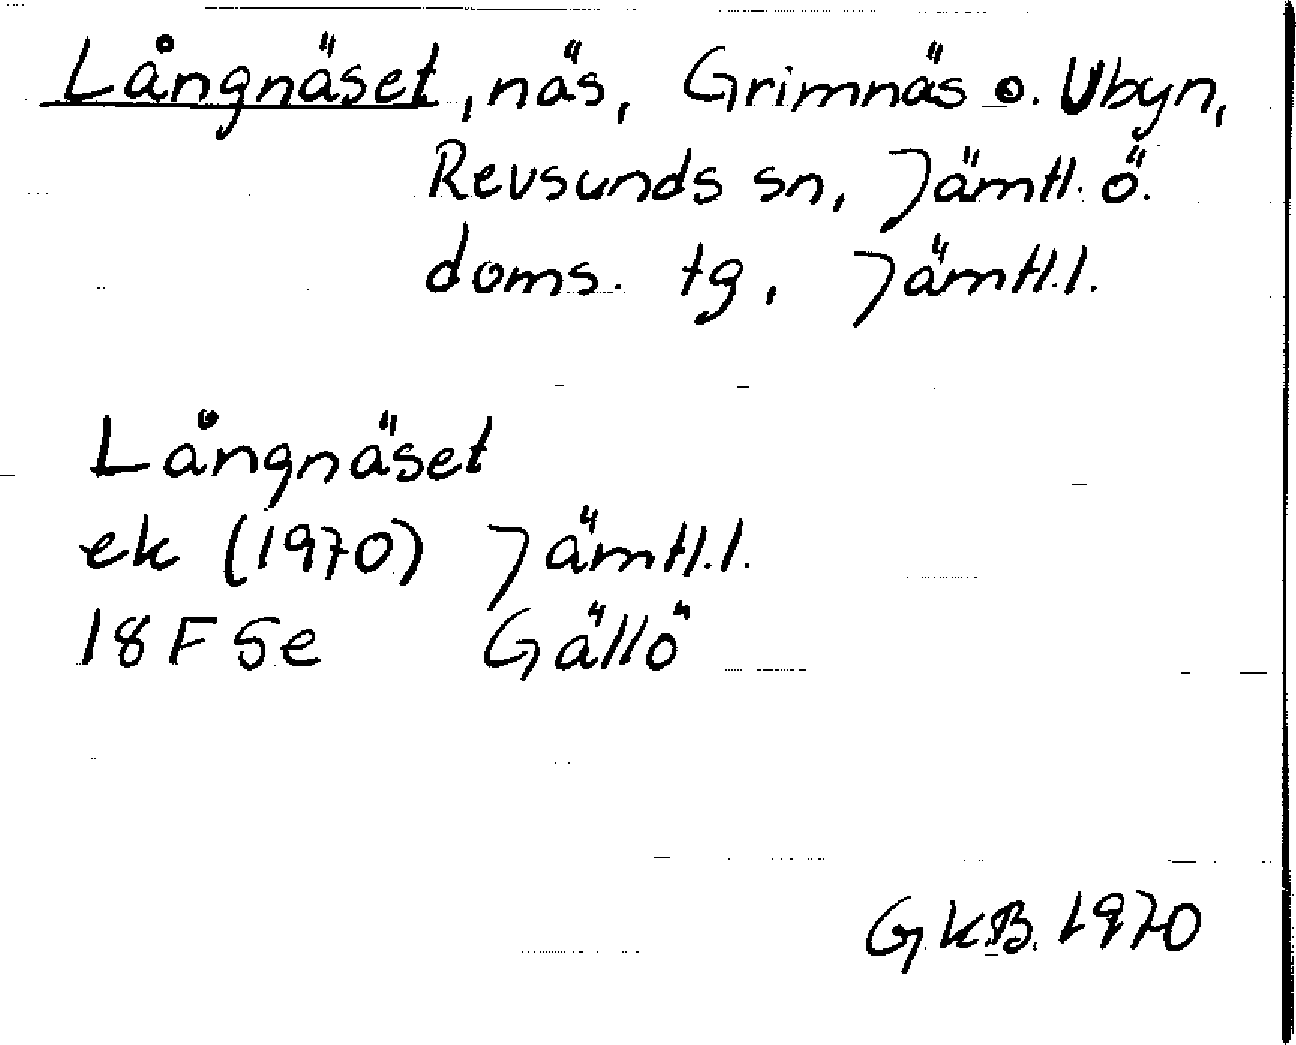 Långnäset, näs, Grimnäs o. Ubyn,
Revsunds sn, Jämtl. ö.
doms. tg, Jämtl.l.
Långnäset
ek (1970) Jämtl.l.
18F 5e Gällö
G.K.B. 1970